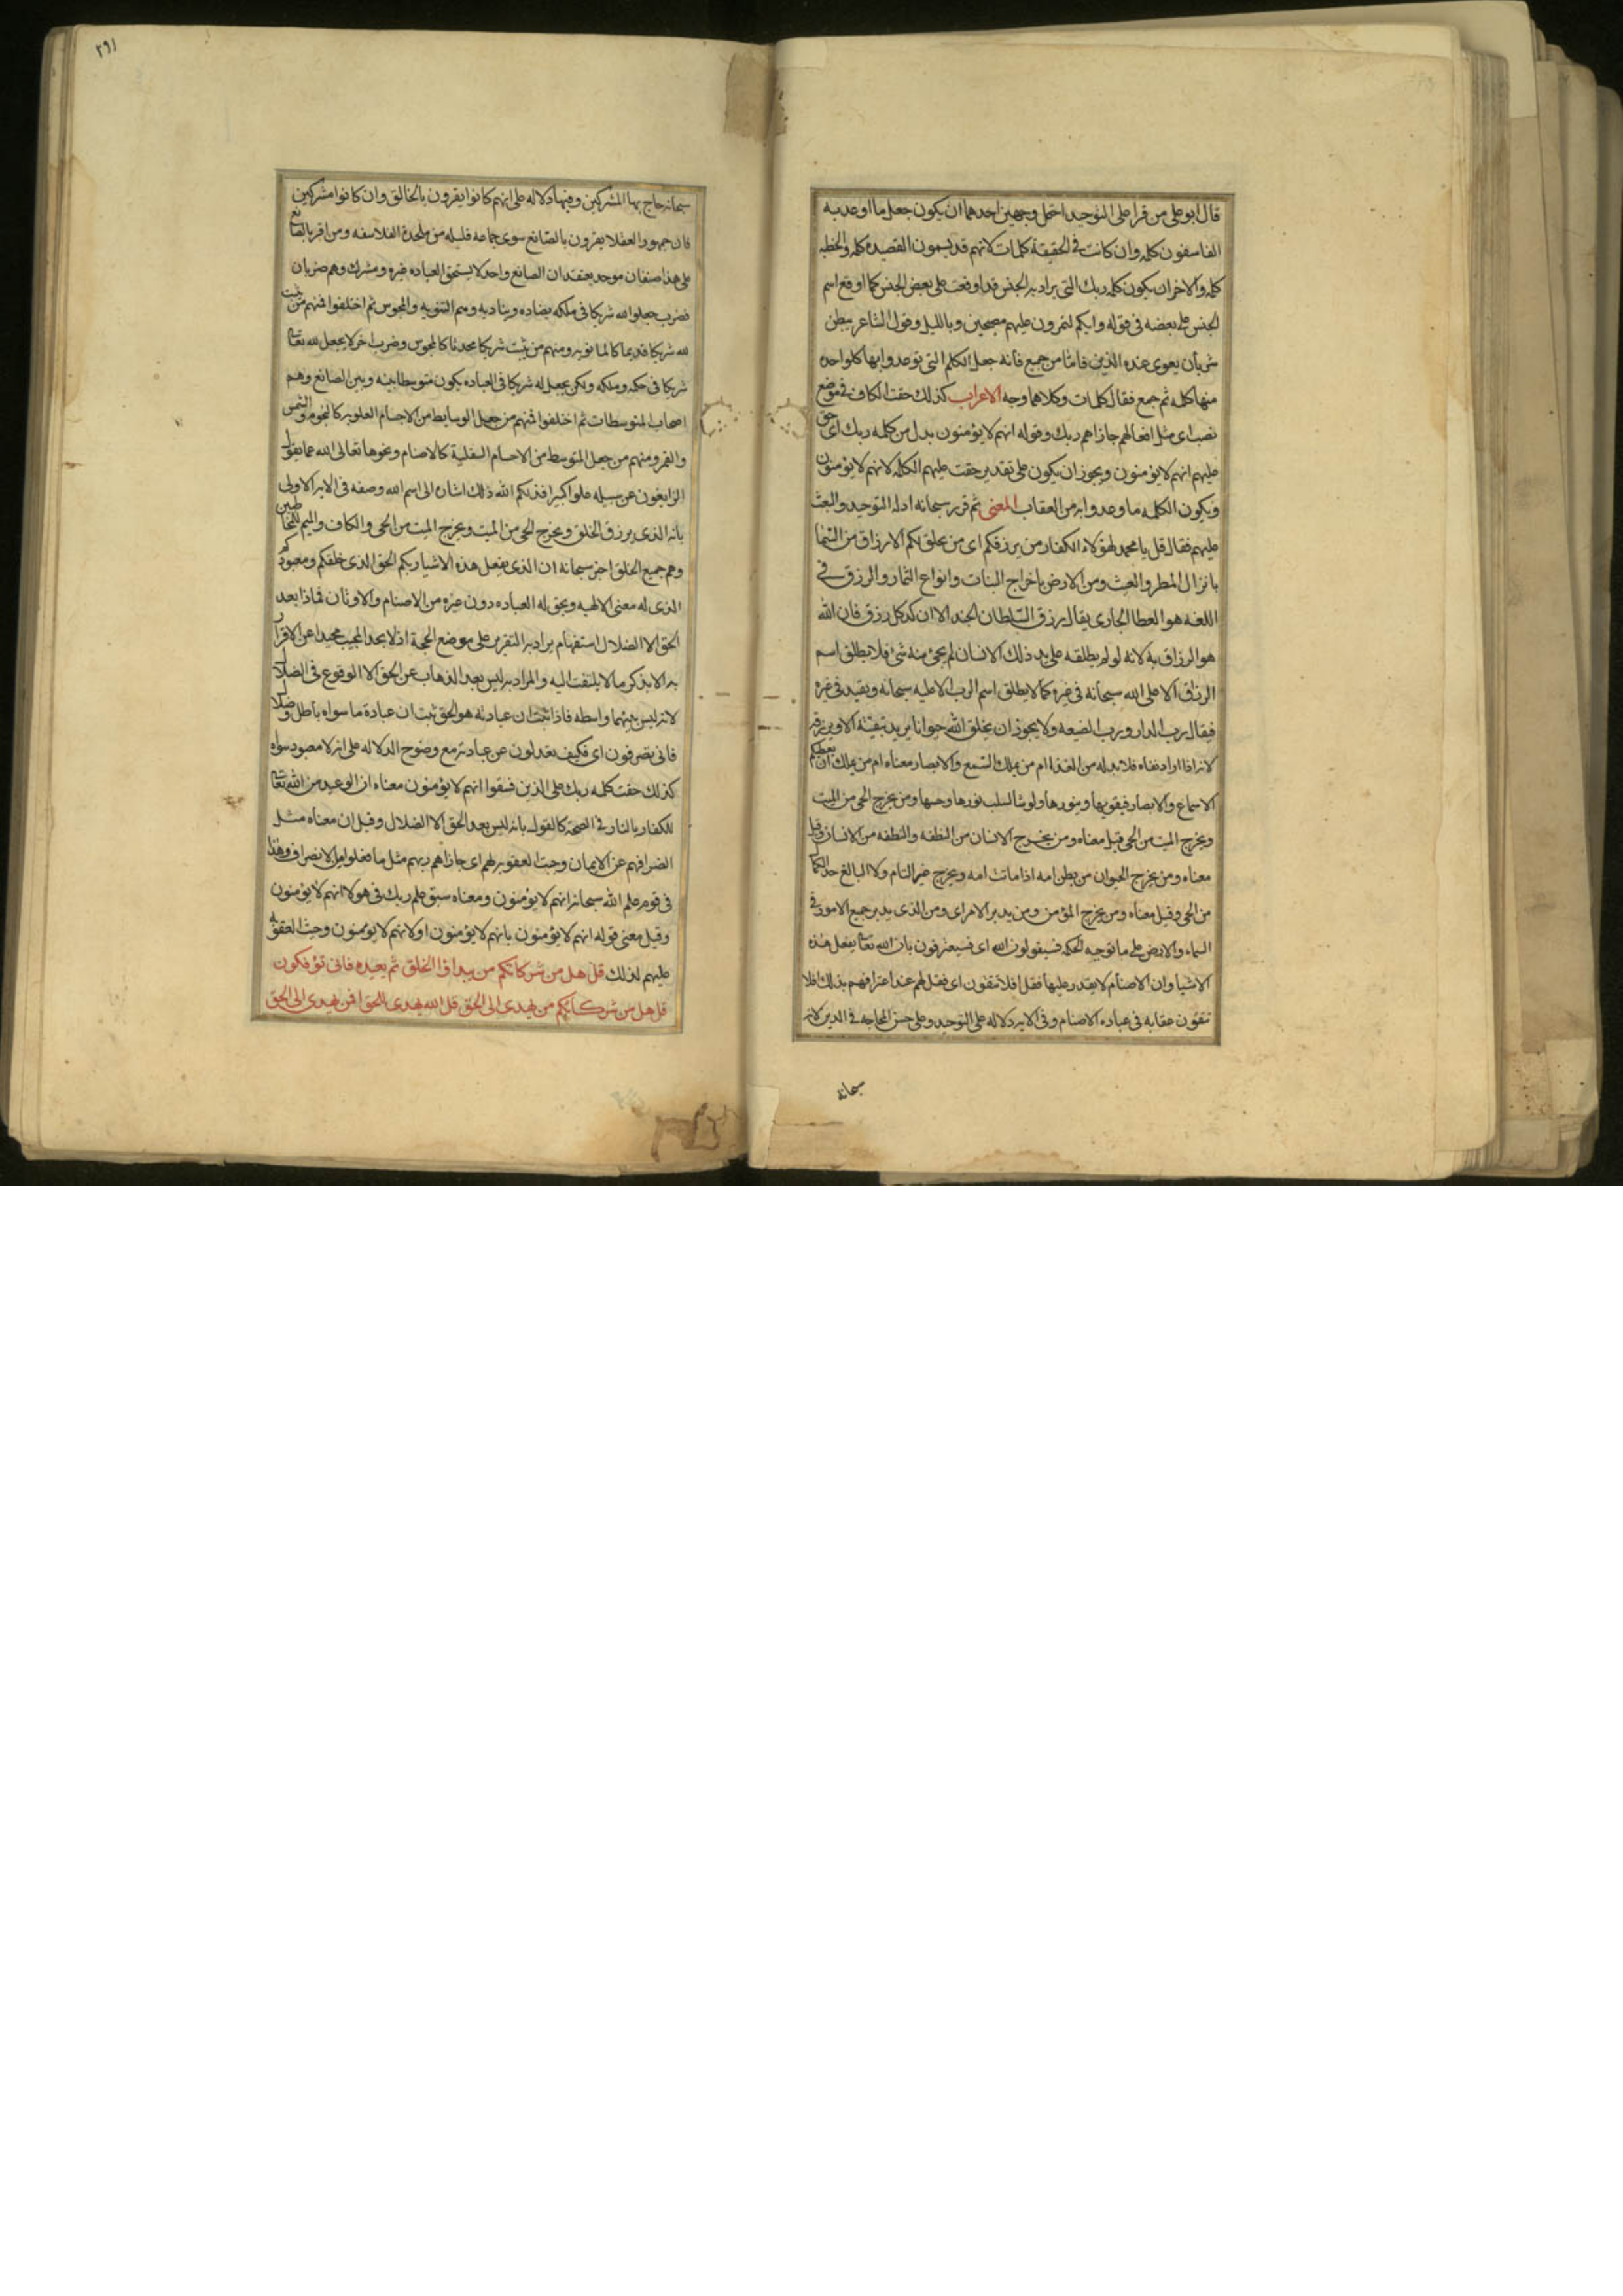 قال ابو علی من قرا علی التوحید احتمل وجهین احدهما ان یکون جعل ما اوعد به
الفاسقون کلمه وان کانت فی الحقیقة کلمات لانهم قد یسمون القصیده کلمه والخطبه
کلمه والاخر ان یکون کلمه ربک التی یراد به الجنس قد اوقعت علی بعض الجنس کما اوقع اسم
الجنس علی بعضه فی قوله وانکم لتمرون علیهم مصبحین وباللیل وقول الشاعر ببطن
شریان یعوی عنده الذیب فاما من جمع فانه جعل الکلم التی توعدوا بها کل واحده
منها کلمه ثم جمع فقال کلمات وکلاهما وجه الاعراب کذلک حقت الکاف فی موضع
نصب ای مثل افعالهم جازاهم ربک وقوله انهم لا یؤمنون بدل من کلمه ربک ای حق
علیهم انهم لا یؤمنون ویجوز ان یکون علی تقدیر حقت علیهم الکلمه لانهم لا یؤمنون
ویکون الکلمه ما وعدوا به من العقاب المعنی ثم قرر سبحانه ادله التوحید والبعث
علیهم فقال قل یا محمد لهؤلاء الکفار من یرزقکم ای من یخلق لکم الارزاق من السما
بانزال المطر والغیث ومن الارض باخراج النبات وانواع الثمار والرزق فی
اللغه هو العطا الجاری یقال رزق السلطان الجند الا ان کل رزق فان الله
هو الرزاق به لانه لو لم یطلقه علی ید ذلک الانسان لم یجئ منه شئ فلا یطلق اسم
الرزاق الا علی الله سبحانه فی غیره کما لا یطلق اسم الرب الا علیه سبحانه ویقید فی غیره
فیقال رب الدار ورب الضیعه ولا یجوز ان یخلق الله حیوانا یرید تبقیته الا ویرزقه
لانه اذا اراد بقاه فلا بد له من الغذا ام من یملک السمع والابصار معناه ام من یملک ان یعطیکم
الاسماع والابصار فیقویها وینورها ولو شا لسلب نورها وحسها ومن یخرج الحی من المیت
ویخرج المیت من الحی قیل معناه ومن یخرج الانسان من النطفه والنطفه من الانسان وقیل
معناه ومن یخرج الحیوان من بطن امه اذا ماتت امه ویخرج غیر التام ولا البالغ حد الکمال
من الحی وقیل معناه ومن یخرج المؤمن ومن یدبر الامر ای ومن الذی یدبر جمیع الامور فی
السماء والارض علی ما توجبه الحکمه فسیقولون الله ای فسیعترفون بان الله تعالی یفعل هذه
الاشیا وان الاصنام لا یقدر علیها فقل افلا تتقون ای فقل لهم عند اعترافهم بذلک افلا
تتقون عقابه فی عباده الاصنام وفی الایه دلاله علی التوحید وعلی حسن المحاجه فی الدین لانه
سبحانه
۲۹۱
سبحانه حاج بها المشرکین وفیها دلاله علی انهم کانوا یقرون بالخالق وان کانوا مشرکین
فان جمهور العقلا یقرون بالصانع سوی جماعه قلیله من ملحدة الفلاسفه ومن اقر بالصانع
علی هذا صنفان موحد یعتقد ان الصانع واحد لا یستحق العباده غیره ومشرک وهم ضربان
فضرب جعلوا لله شریکا فی ملکه یضاده ویناویه وهم الثنویه والمجوس ثم اختلفوا فمنهم من یثبت
لله شریکا قدیما کالمانویه ومنهم من یثبت شریکا محدثا کالمجوس وضرب اخر لا یجعل لله تعالی
شریکا فی حکمه وملکه ولکن یجعل له شریکا فی العباده یکون متوسطا بینه وبین الصانع وهم
اصحاب المتوسطات ثم اختلفوا فمنهم من جعل الوسایط من الاجسام العلویه کالنجوم والشمس
والقمر ومنهم من جعل المتوسط من الاجسام السفلیة کالاصنام ونحوها تعالی الله عما یقول
الزایغون عن سبیله علوا کبیرا فذلکم الله ذلک اشاره الی اسم الله وصفه فی الایه الاولی
بانه الذی یرزق الخلق ویخرج الحی من المیت ویخرج المیت من الحی والکاف والمیم للمخاطبین
وهم جمیع الخلق اخبر سبحانه ان الذی یفعل هذه الاشیا ربکم الحق الذی خلقکم ومعبودکم
الذی له معنی الالهیه ویحق له العباده دون غیره من الاصنام والاوثان فماذا بعد
الحق الا الضلال استفهام یراد به التقریر علی موضع الحجة اذ لا یجد المجیب محیدا عن الاقرار
به الا بذکر ما لا یلتفت الیه والمراد به لیس بعد الذهاب عن الحق الا الوقوع فی الضلال
لانه لیس بینهما واسطه فاذا ثبت ان عبادته هو الحق ثبت ان عبادة ما سواه باطل وضلال
فانی تصرفون ای فکیف تعدلون عن عبادته مع وضوح الدلاله علی انه لا معبود سواه
کذلک حقت کلمه ربک علی الذین فسقوا انهم لا یؤمنون معناه ان الوعید من الله تعالی
للکفار بالنار فی الصحة کالقول بانه لیس بعد الحق الا الضلال وقیل ان معناه مثل
انصرافهم عن الایمان وجبت العقوبه لهم ای جازاهم ربهم مثل ما فعلوا من الانصراف وهذا
فی قوم علم الله سبحانه انهم لا یؤمنون ومعناه سبق علم ربک فی هولا انهم لا یؤمنون
وقیل معنی قوله انهم لا یؤمنون بانهم لا یؤمنون او لانهم لا یؤمنون وجبت العقوبه
علیهم لذلک قل هل من شرکائکم من یبدؤا الخلق ثم یعیده فانی تؤفکون
قل هل من شرکائکم من یهدی الی الحق قل الله یهدی للحق افمن یهدی الی الحق